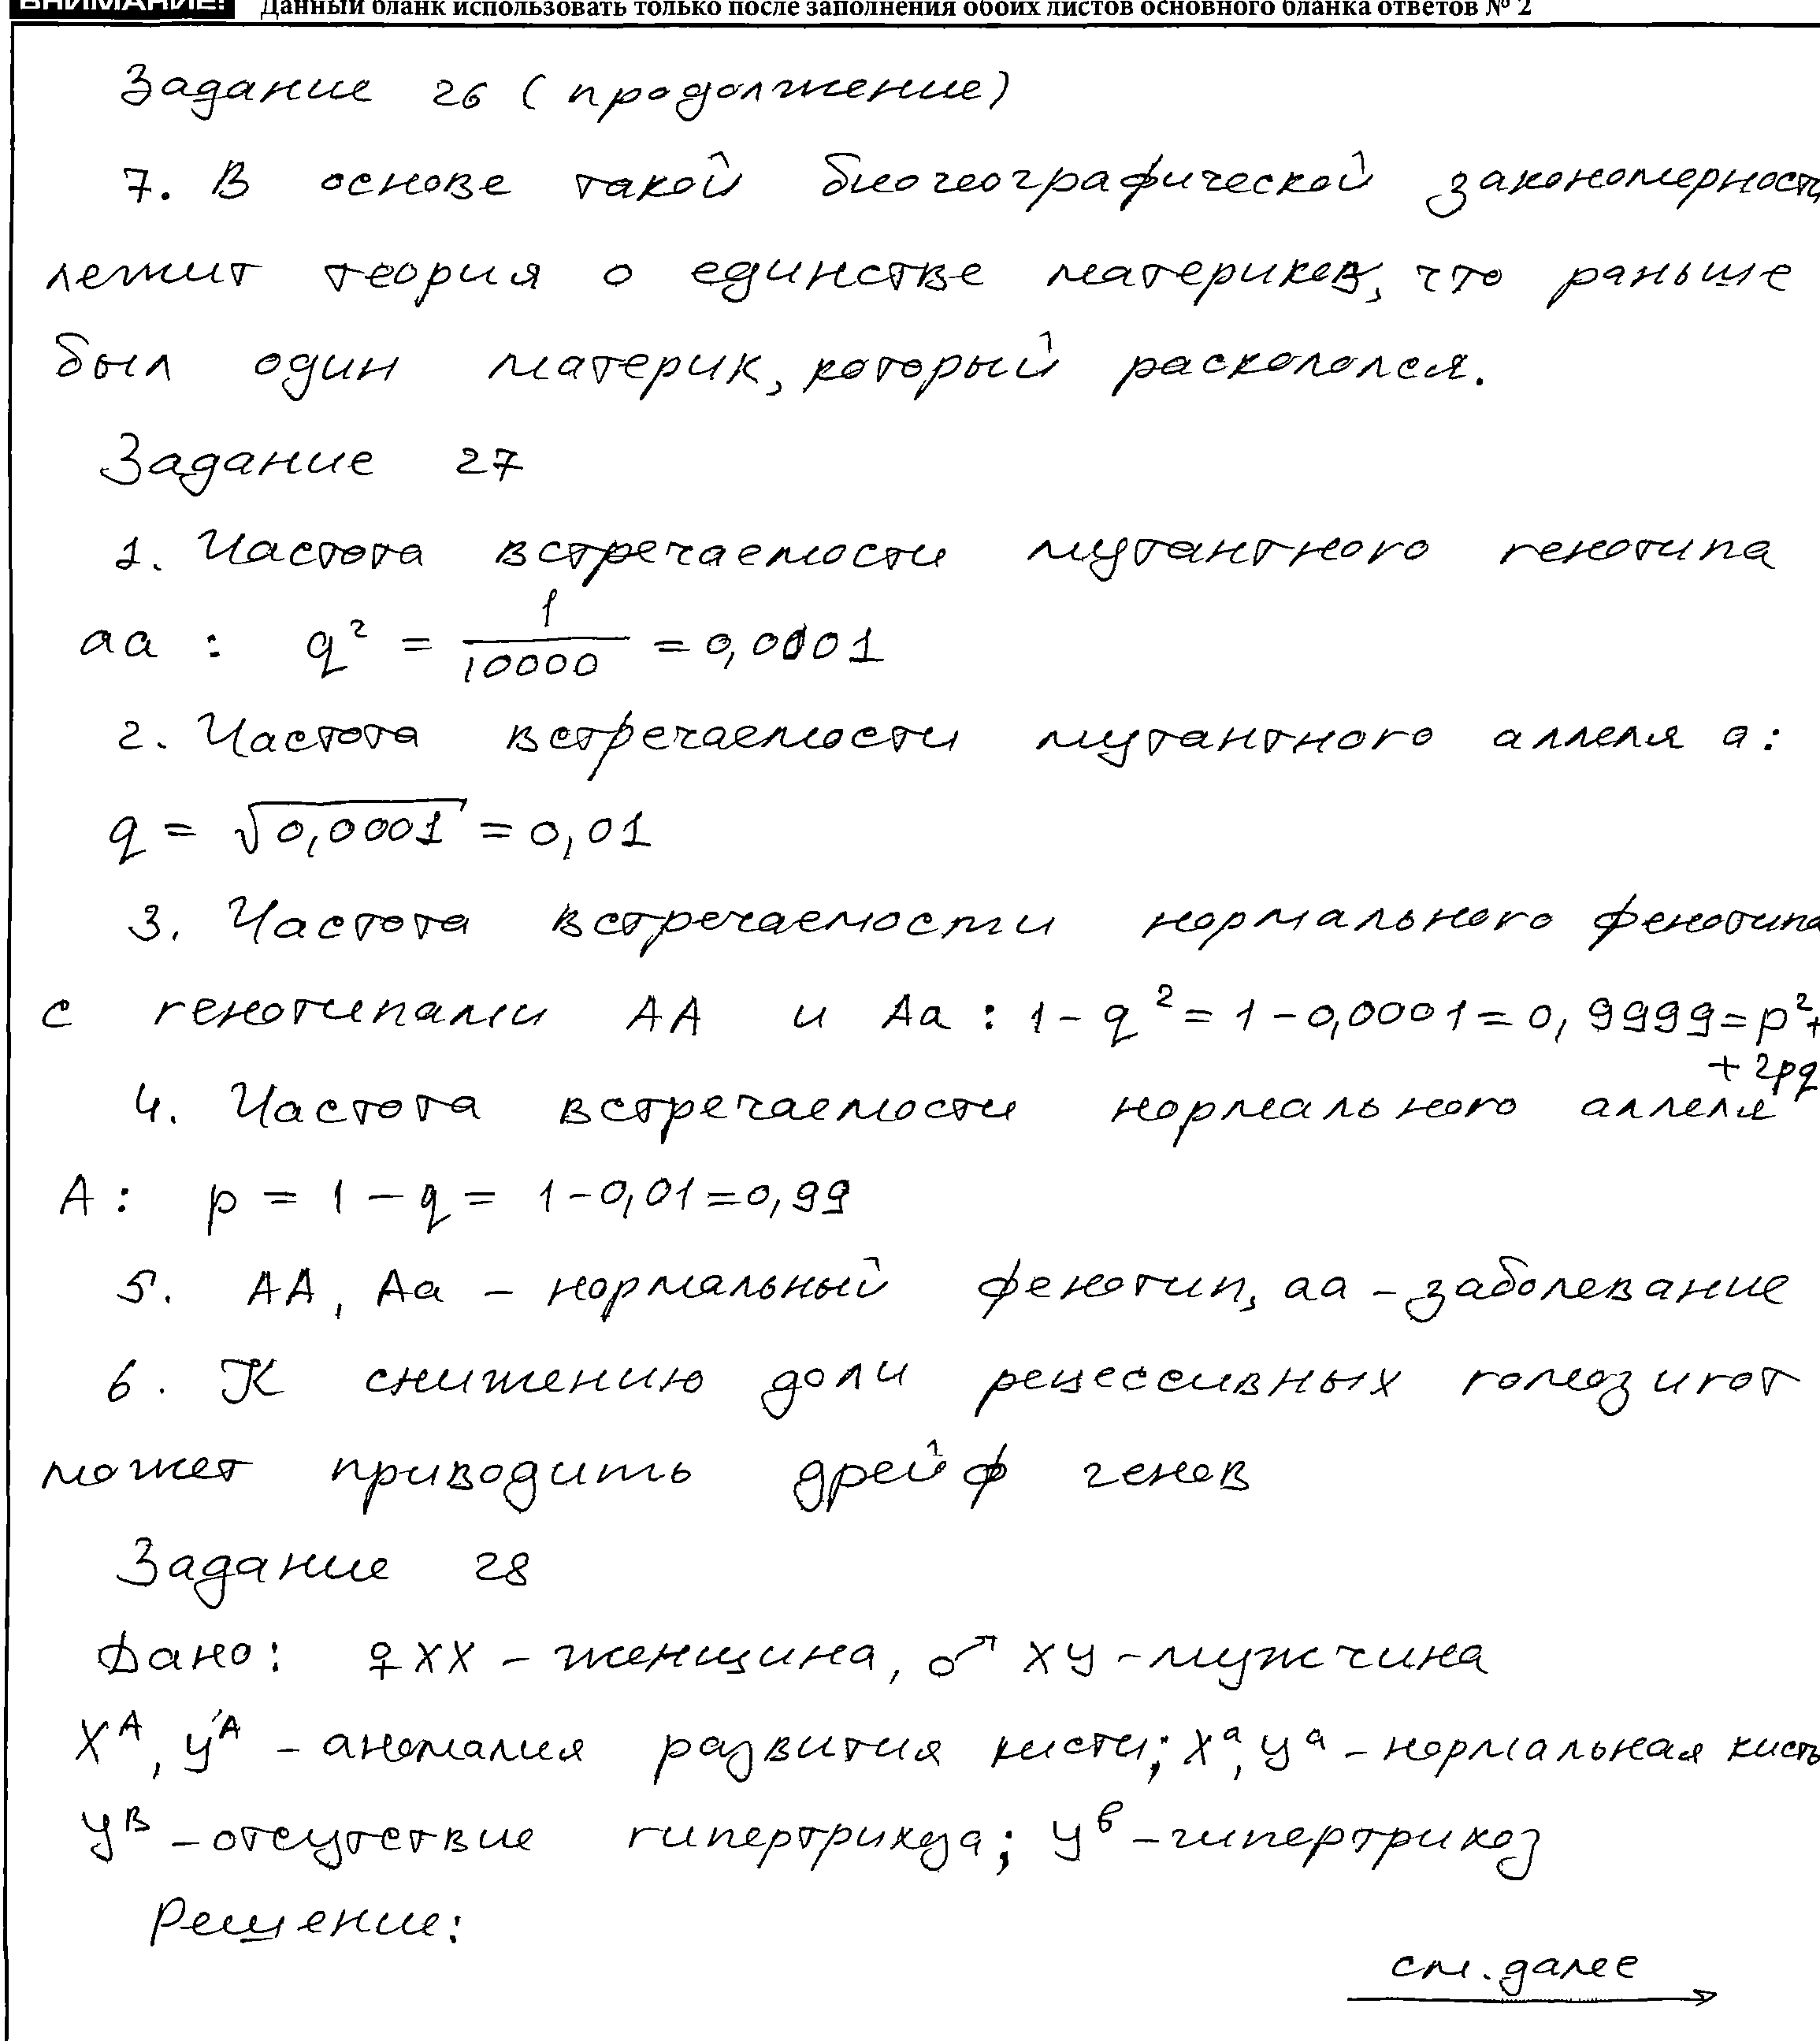 ВНИМАНИЕ! Данный бланк использовать только после заполнения обоих листов основного бланка ответов № 2
Задание 26 (продолжение)
7. В основе такой биогеографической закономерности
лежит теория о единстве материков, что раньше
был один материк, который раскололся.
Задание 27
1. Частота встречаемости мутантного генотипа
aa : q² = 1/10000 = 0,0001
2. Частота встречаемости мутантного аллеля a:
q = √0,0001 = 0,01
3. Частота встречаемости нормального фенотипа
с генотипами AA и Aa : 1 - q² = 1 - 0,0001 = 0,9999 = p² +
+ 2pq
4. Частота встречаемости нормального аллеля
A : p = 1 - q = 1 - 0,01 = 0,99
5. AA, Aa - нормальный фенотип, aa - заболевание
6. К снижению доли рецессивных гомозигот
может приводить дрейф генов
Задание 28
Дано: ♀ XX - женщина, ♂ XY - мужчина
Xᴬ, Yᴬ - аномалия развития кисти; Xᵃ, Yᵃ - нормальная кисть
Yᴮ - отсутствие гипертрихоза; Yᵇ - гипертрихоз
Решение:
см. далее